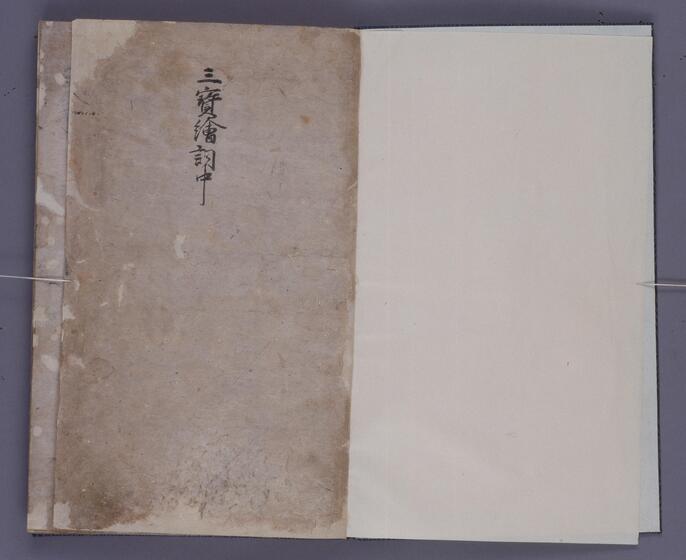 三寳繪詞中